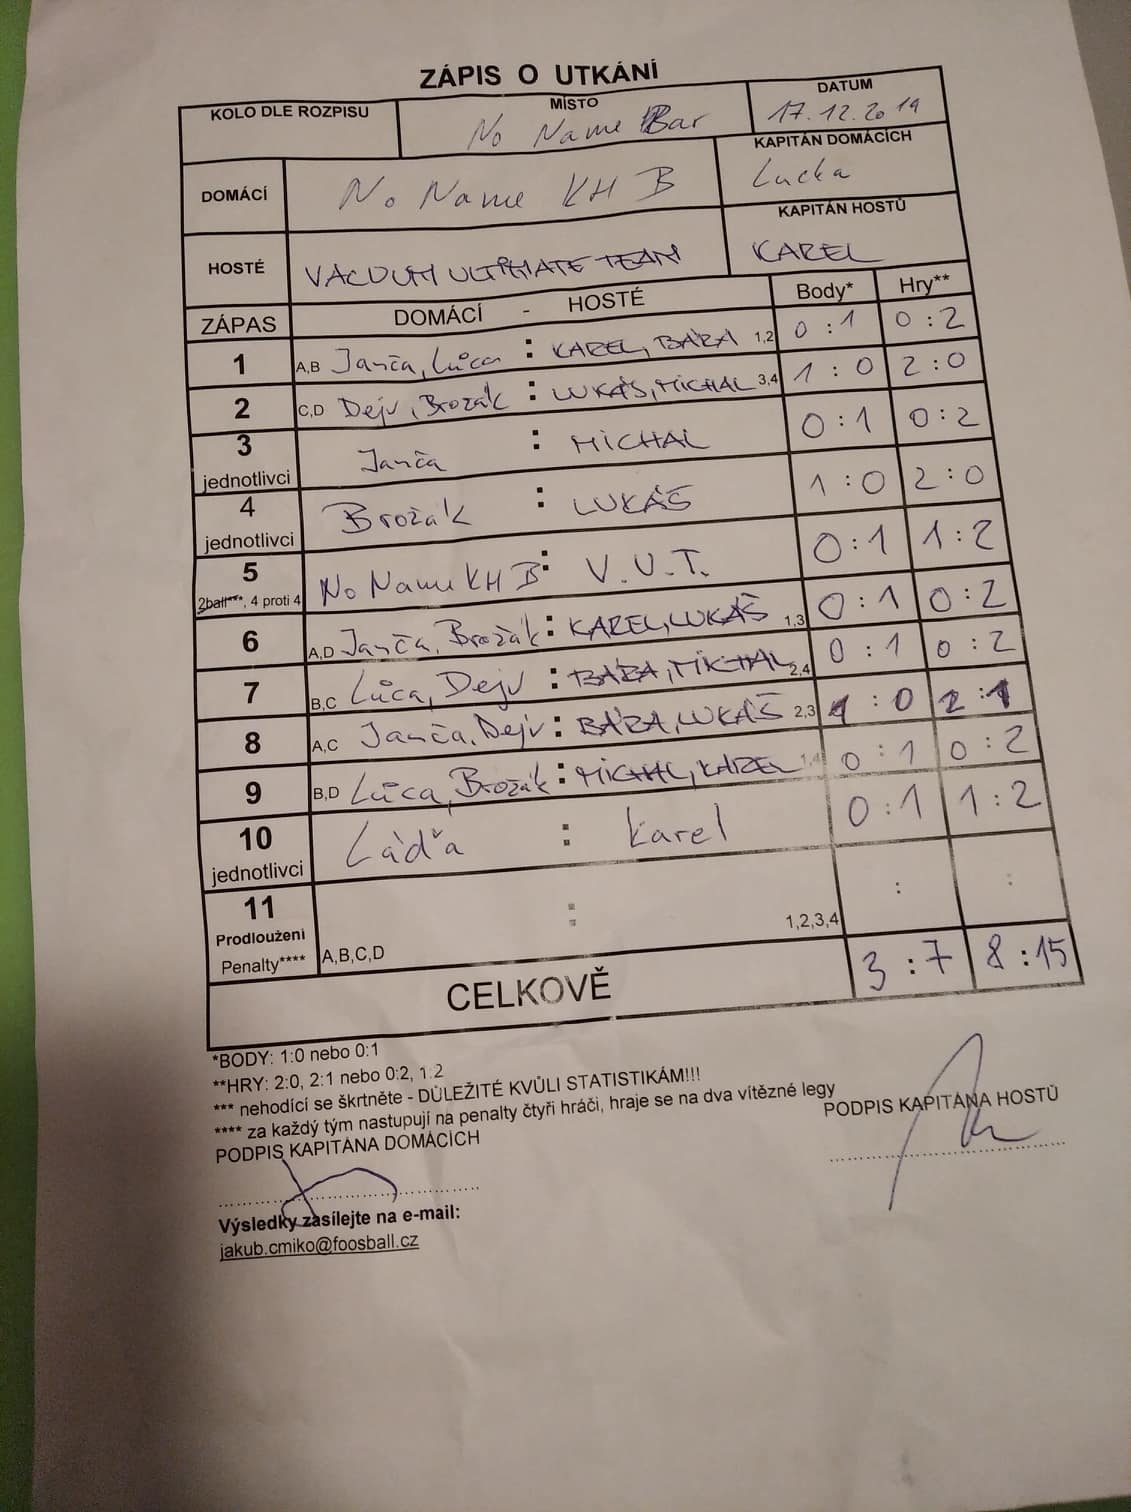 ZÁPIS O UTKÁNÍ
KOLO DLE ROZPISU
MÍSTO
No Name Bar
DATUM
17.12.2019
DOMÁCÍ
No Name KH B
KAPITÁN DOMÁCÍCH
Lucka
HOSTÉ
VACUUM ULTIMATE TEAM
KAPITÁN HOSTŮ
KAREL
ZÁPAS DOMÁCÍ - HOSTÉ Body* Hry**
1 A,B Janča, Lůca : KAREL, BÁRA 1,2 0 : 1 0 : 2
2 C,D Dejv, Brožák : LUKÁŠ, MICHAL 3,4 1 : 0 2 : 0
3 jednotlivci Janča : MICHAL 0 : 1 0 : 2
4 jednotlivci Brožák : LUKÁŠ 1 : 0 2 : 0
5 2ball***, 4 proti 4 No Name KH B : V.U.T. 0 : 1 1 : 2
6 A,D Janča, Brožák : KAREL, LUKÁŠ 1,3 0 : 1 0 : 2
7 B,C Lůca, Dejv : BÁRA, MICHAL 2,4 0 : 1 0 : 2
8 A,C Janča, Dejv : BÁRA, LUKÁŠ 2,3 1 : 0 2 : 1
9 B,D Lůca, Brožák : MICHAL, KAREL 1,4 0 : 1 0 : 2
10 jednotlivci Láďa : Karel 0 : 1 1 : 2
11 Prodloužení Penalty**** A,B,C,D : 1,2,3,4 : :
CELKOVĚ 3 : 7 8 : 15
*BODY: 1:0 nebo 0:1
**HRY: 2:0, 2:1 nebo 0:2, 1:2
*** nehodící se škrtněte - DŮLEŽITÉ KVŮLI STATISTIKÁM!!!
**** za každý tým nastupují na penalty čtyři hráči, hraje se na dva vítězné legy
PODPIS KAPITÁNA DOMÁCÍCH
PODPIS KAPITÁNA HOSTŮ
Výsledky zasílejte na e-mail:
jakub.cmiko@foosball.cz